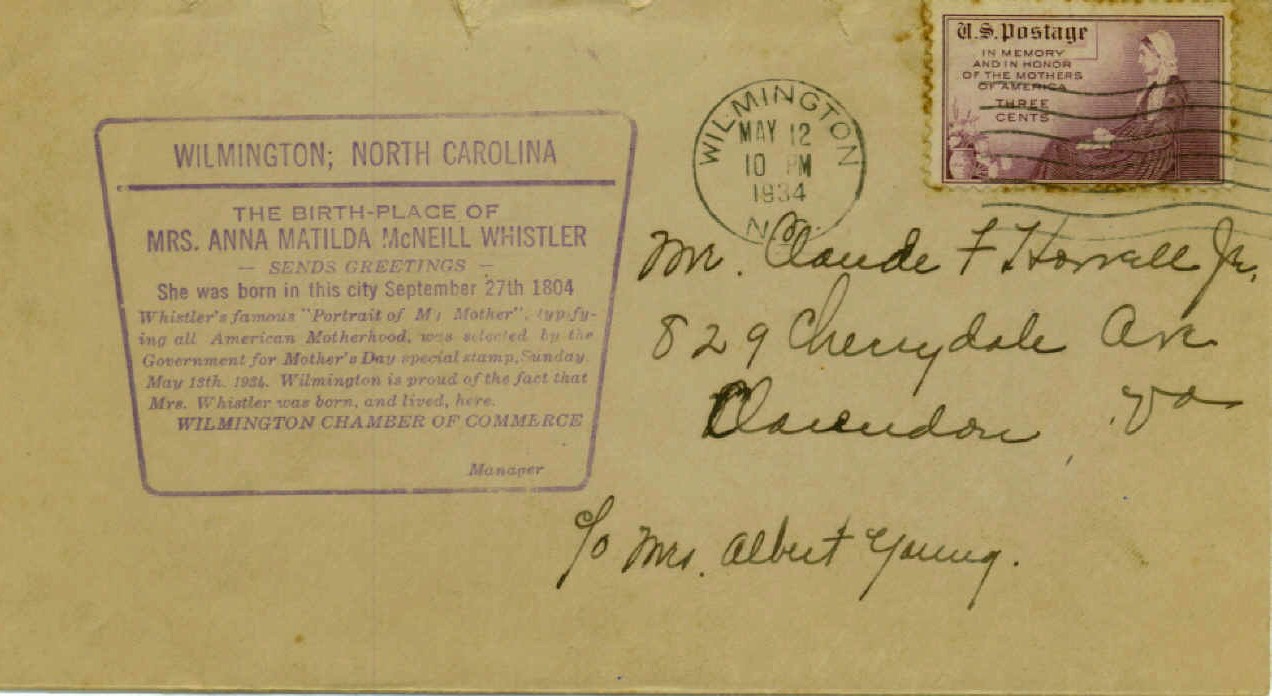 WILMINGTON; NORTH CAROLINA
THE BIRTH-PLACE OF
MRS. ANNA MATILDA McNEILL WHISTLER
— SENDS GREETINGS —
She was born in this city September 27th 1804
Whistler's famous "Portrait of My Mother", typify-
ing all American Motherhood, was selected by the
Government for Mother's Day special stamp, Sunday.
May 13th. 1934. Wilmington is proud of the fact that
Mrs. Whistler was born, and lived, here.
WILMINGTON CHAMBER OF COMMERCE
Manager
WILMINGTON
MAY 12
10 PM
1934
N.C.
U.S. Postage
IN MEMORY
AND IN HONOR
OF THE MOTHERS
OF AMERICA
THREE
CENTS
Mr. Claude F Horrell Jr.
829 Cherrydale Ave
Clarendon, Va
c/o Mrs. Albert Young.